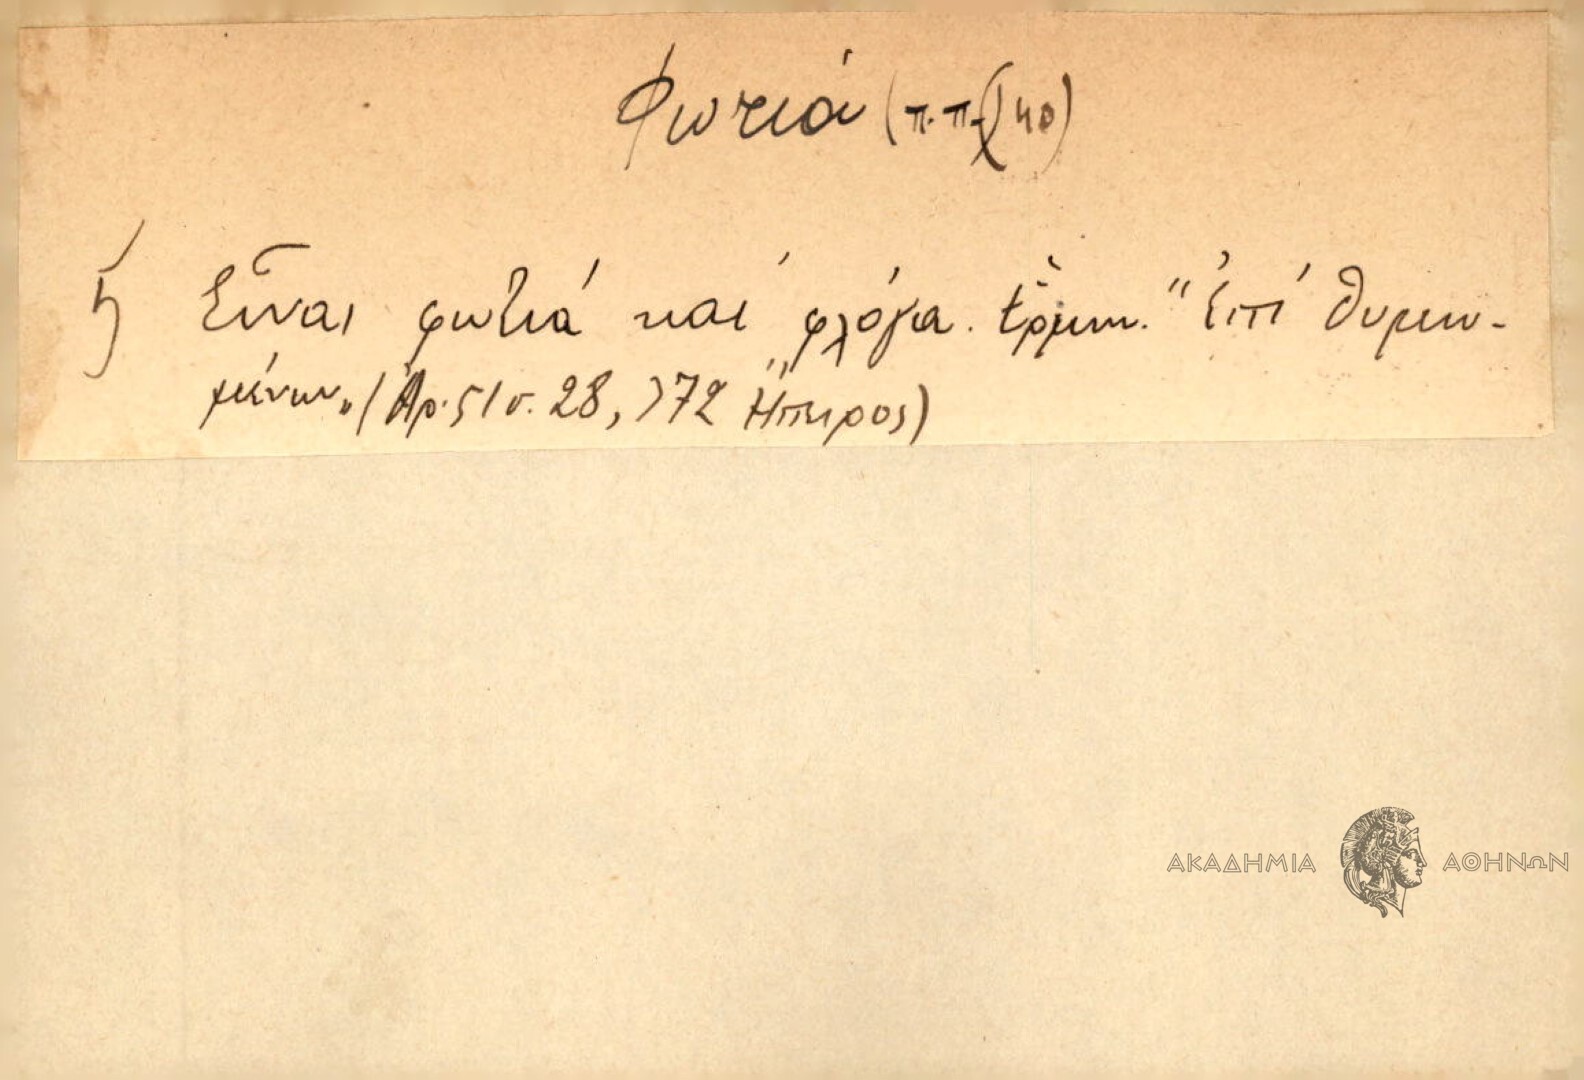 Φωτιά (π.π. 40)
Εἶναι φωτιά καί φλόγα. Ἑρμην. "Ἐπί θυμω-
μένων" (Ἀρ. 51 σ. 28, 772 Ἤπειρος)
ΑΚΑΔΗΜΙΑ ΑΘΗΝΩΝ